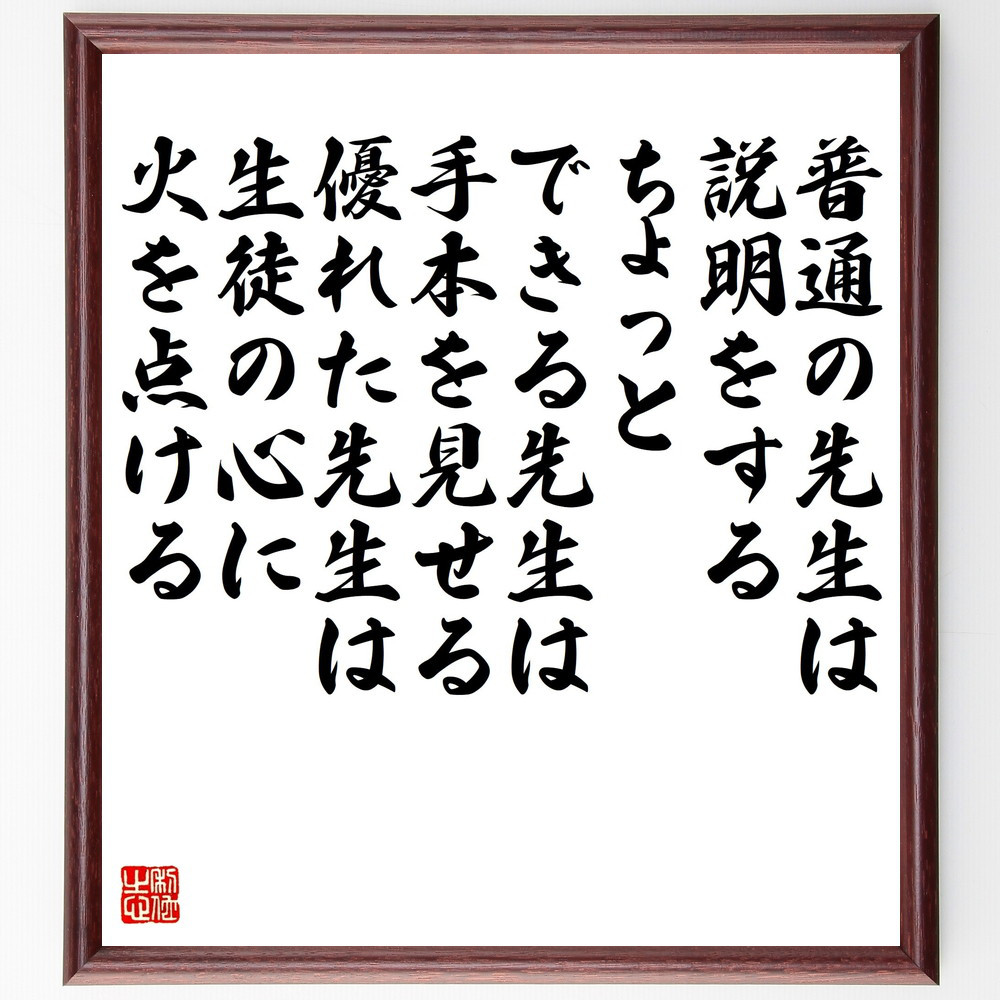 普通の先生は
説明をする
ちょっと
できる先生は
手本を見せる
優れた先生は
生徒の心に
火を点ける